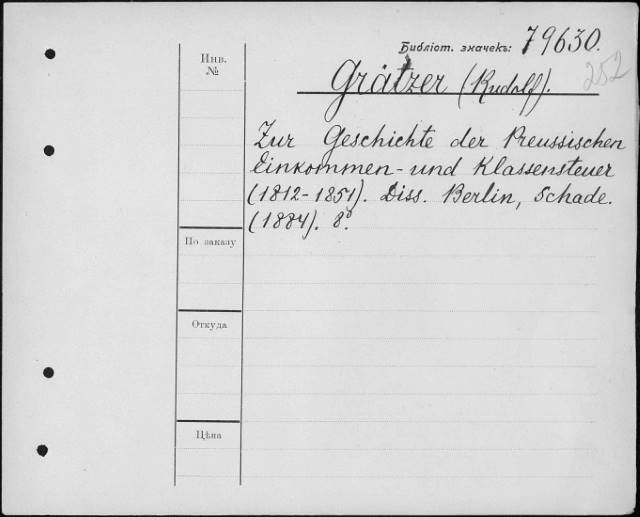 Библіот. значекъ: 79630.
Инв.
№
252
Grätzer (Rudolf).
Zur Geschichte der Preussischen
Einkommen- und Klassensteuer
(1812-1851). Diss. Berlin, Schade.
(1884). 8º
По заказу
Откуда
Цѣна